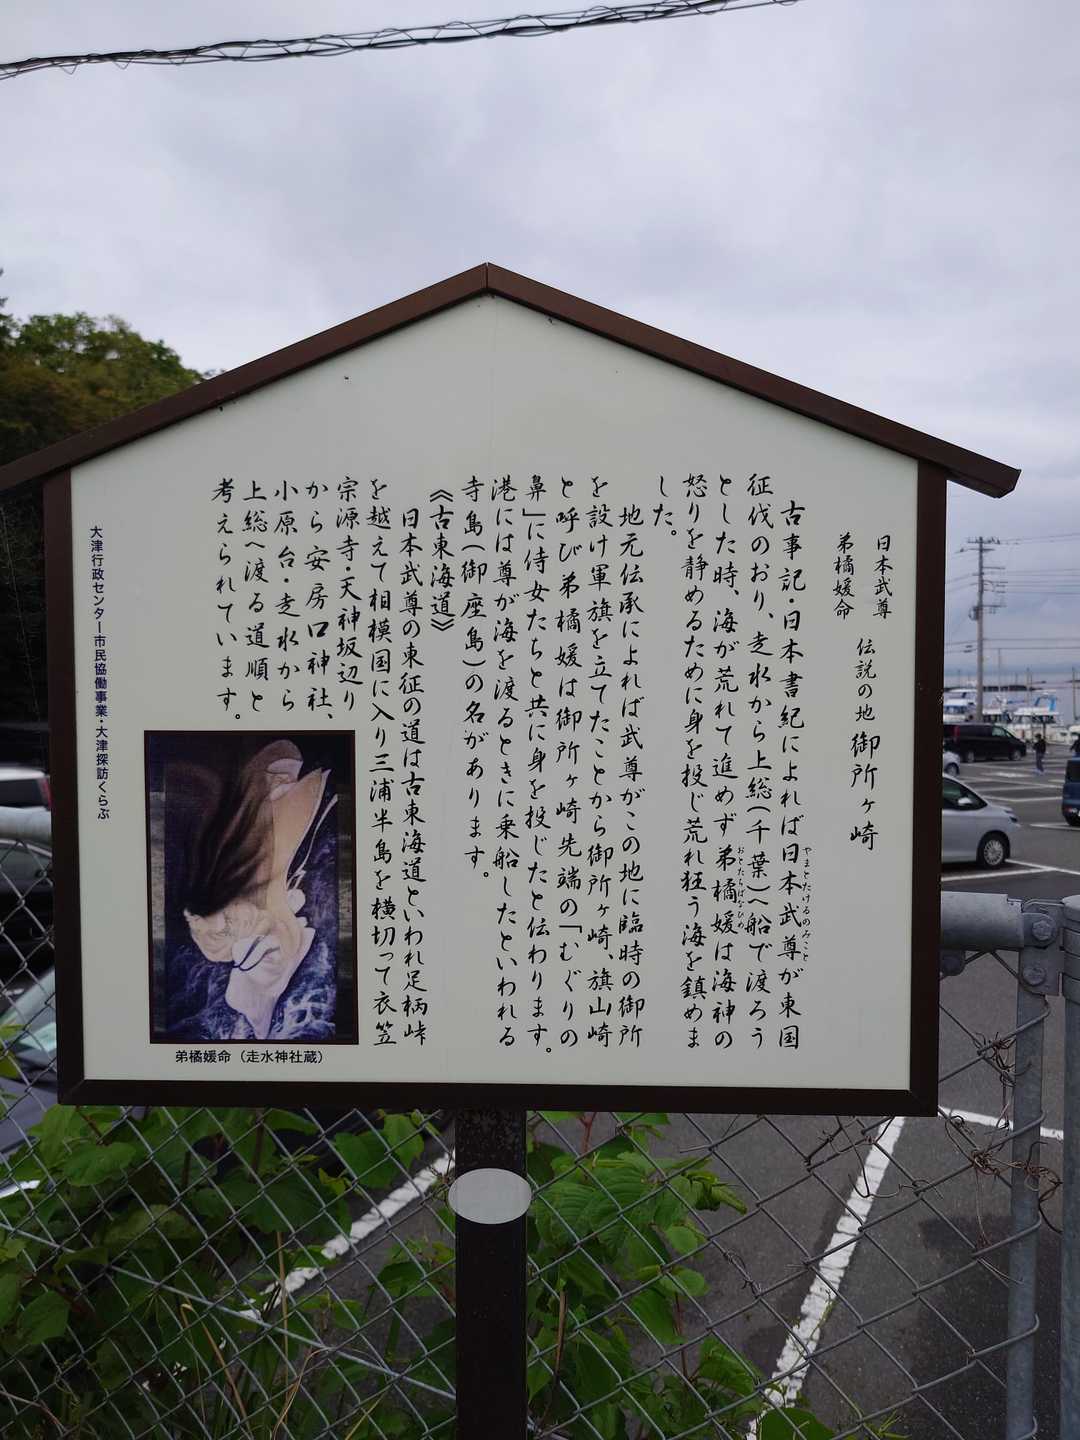 日本武尊
弟橘媛命
伝説の地 御所ヶ崎
古事記・日本書紀によれば日本武尊が東国
やまとたけるのみこと
征伐のおり、走水から上総(千葉)へ船で渡ろう
とした時、海が荒れて進めず弟橘媛は海神の
おとたちばなひめ
怒りを静めるために身を投じ荒れ狂う海を鎮めま
した。
地元伝承によれば武尊がこの地に臨時の御所
を設け軍旗を立てたことから御所ヶ崎、旗山崎
と呼び弟橘媛は御所ヶ崎先端の「むぐりの
鼻」に侍女たちと共に身を投じたと伝わります。
港には尊が海を渡るときに乗船したといわれる
寺島(御座島)の名があります。
《古東海道》
日本武尊の東征の道は古東海道といわれ足柄峠
を越えて相模国に入り三浦半島を横切って衣笠
宗源寺・天神坂辺り
から安房口神社、
小原台・走水から
上総へ渡る道順と
考えられています。
弟橘媛命(走水神社蔵)
大津行政センター市民協働事業・大津探訪くらぶ